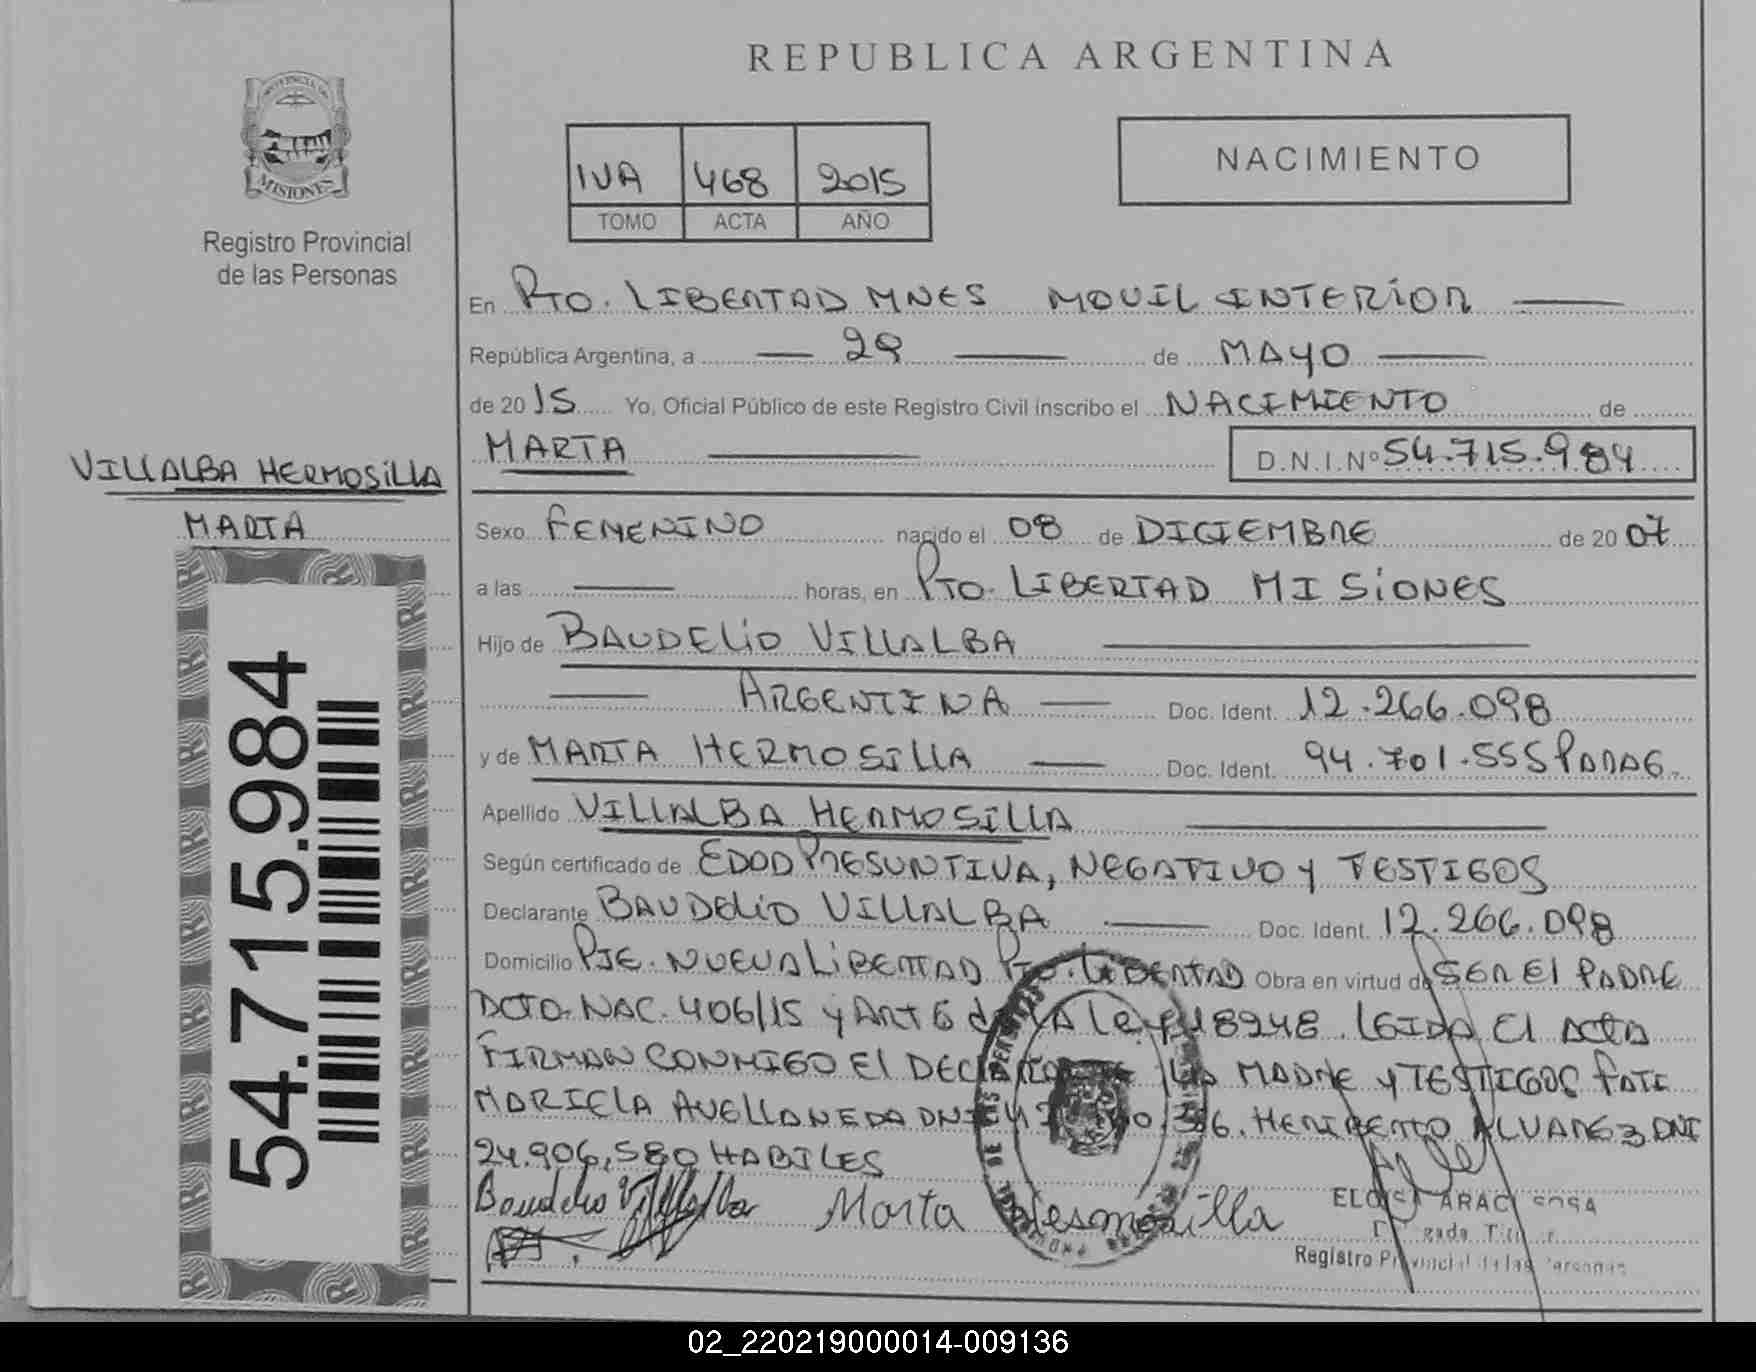 REPUBLICA ARGENTINA
MISIONES
Registro Provincial
de las Personas
IVA 468 2015
TOMO ACTA AÑO
NACIMIENTO
En PTO. LIBERTAD MNES MOVIL INTERIOR
República Argentina, a 29 de MAYO
de 2015 Yo, Oficial Público de este Registro Civil inscribo el NACIMIENTO de
MARTA D.N.I.Nº 54.715.984
VILLALBA HERMOSILLA
MARTA
54.715.984
Sexo FEMENINO nacido el 08 de DICIEMBRE de 2007
a las horas, en PTO. LIBERTAD MISIONES
Hijo de BAUDELIO VILLALBA
ARGENTINA Doc. Ident. 12.266.098
y de MARTA HERMOSILLA Doc. Ident. 94.701.555 PARAG.
Apellido VILLALBA HERMOSILLA
Según certificado de EDAD PRESUNTIVA, NEGATIVO Y TESTIGOS
Declarante BAUDELIO VILLALBA Doc. Ident. 12.266.098
Domicilio PJE. NUEVA LIBERTAD PTO. LIBERTAD Obra en virtud de SER El PADRE
DCTO. NAC. 406/15 y ART 6 de LA Ley 18248. LEIDA El ACTA
FIRMAN CONMIGO El DECLARANTE LA MADRE y TESTIGOS
MARIELA AVELLANEDA DNI HERIBERTO ALVAREZ DNI
24.906.580 HABILES
Baudelio Villalba Marta Hermosilla
ELOISA ARAC SOSA
Registro Provincial de las Personas
02_220219000014-009136